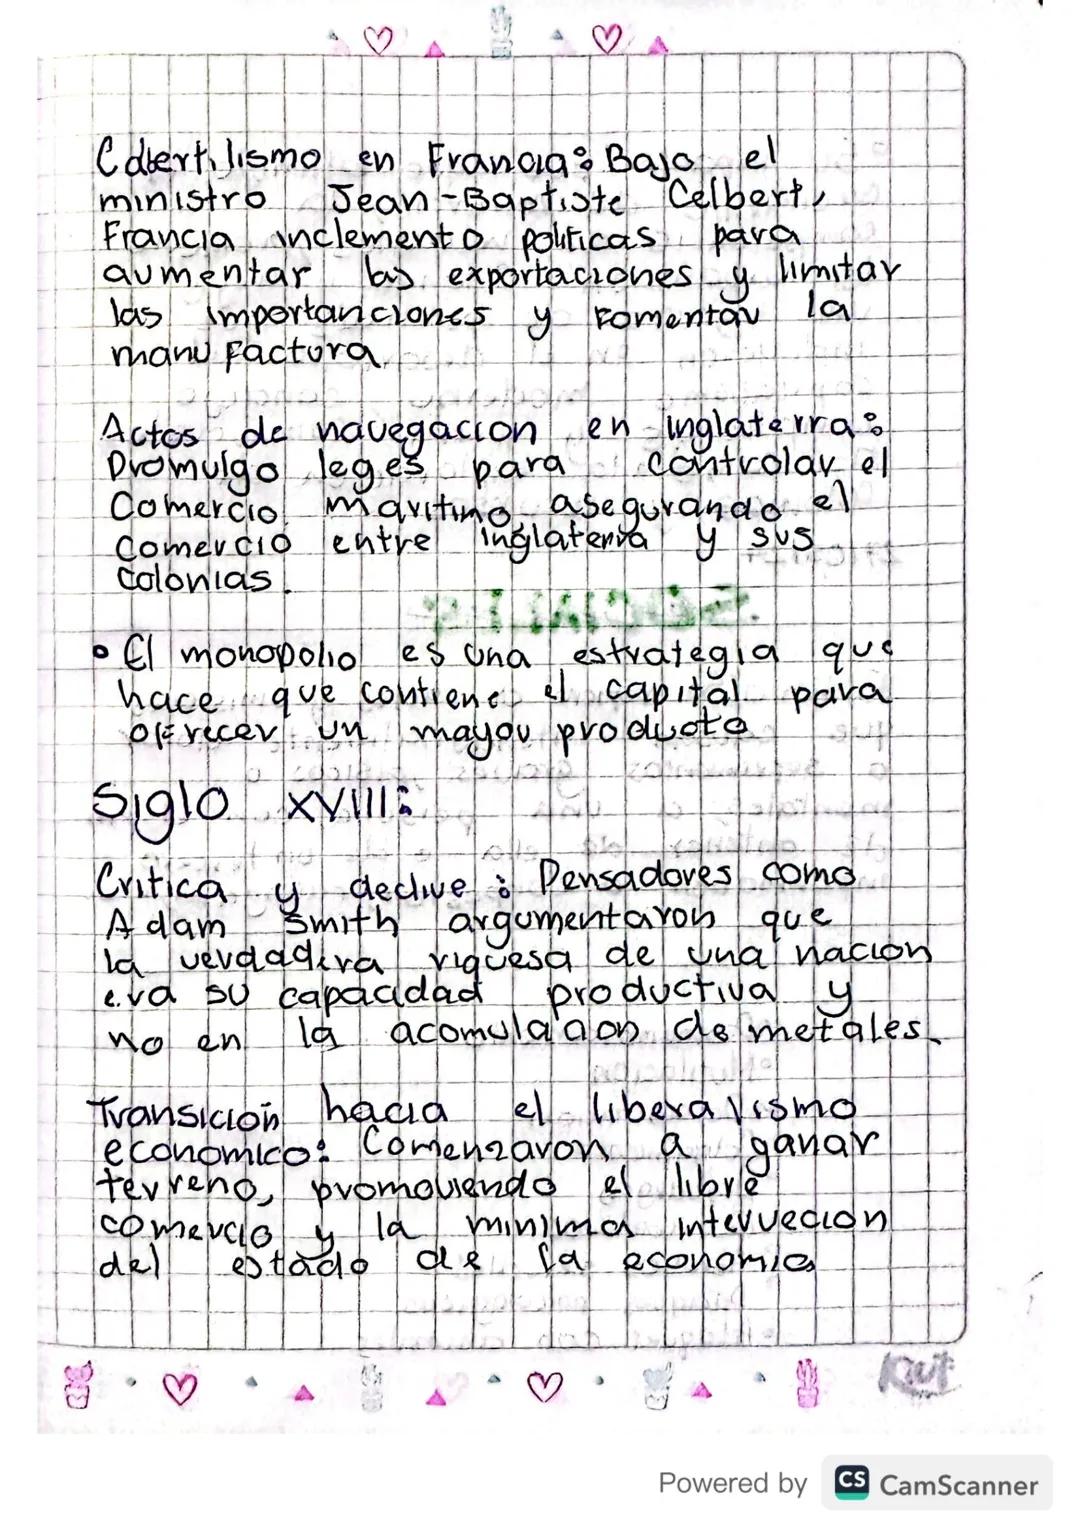 Colbertilismo en Francia: Bajo el
ministro Jean-Baptiste Celbert,
Francia inclemento politicas para
aumentar las exportaciones y limitar
las importanciones y fomentar la
manufactura
Actos de navegacion en inglaterra:
Promulgo leges para controlar el
Comercio maritimo asegurando el
comercio entre inglaterra y sus
colonias.
• El monopolio es una estrategia que
hace que contiene el capital para
ofrecer un mayor producto
Siglo XVIII:
Critica y declive: Pensadores como
Adam Smith argumentaron que
la verdadera riquesa de una nacion
era su capacidad productiva y
no en la acomulacion de metales.
Transicion hacia el liberalismo
economico: Comenzaron a ganar
terreno, promoviendo el libre
comercio y la minima intervecion
del estado de la economia
Rut
Powered by CS CamScanner